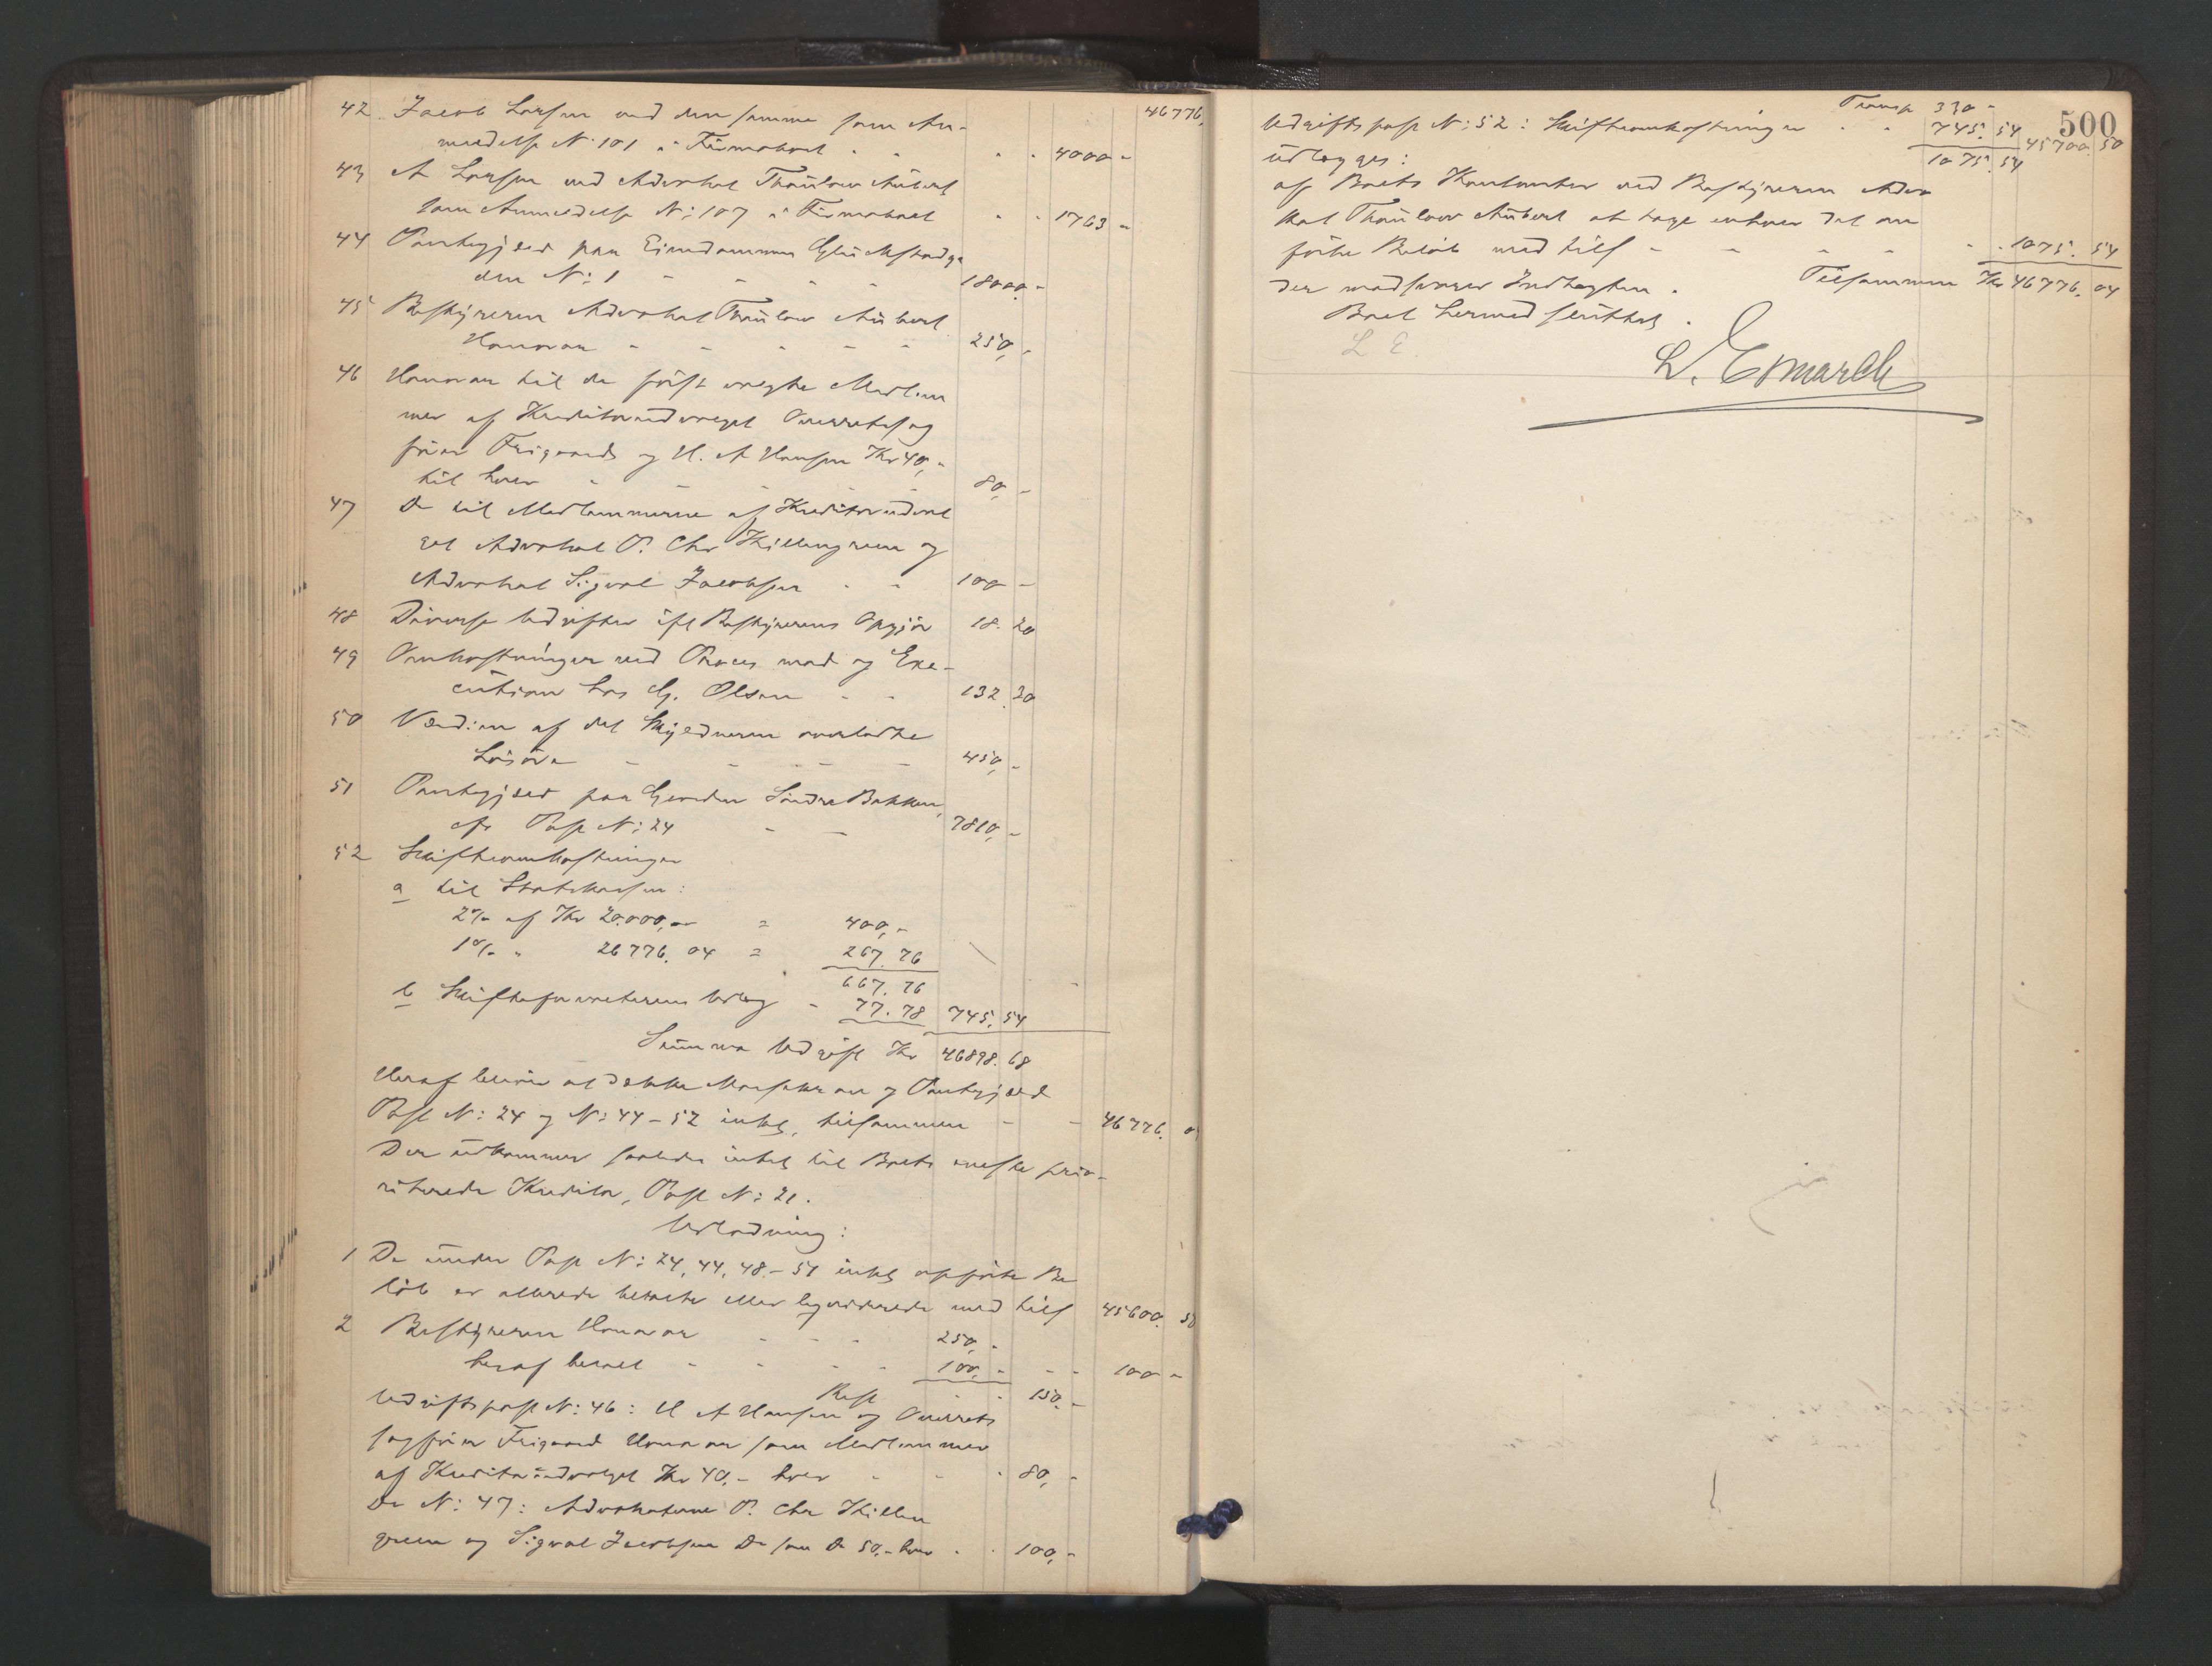 46776.
42. Jacob Larsen ved den samme som An-
meldelse N: 101 i Firmaboet 4000 -
43 A Larsen ved Advokat Thaulow Aubert
som Anmeldelse N: 107 i Firmaboet 1763 -
44 Pantegjæld paa Eiendommen Glückstadga
den N: 1 18000. -
45 Bestyreren Advokat Thaulow Aubert
Honorar 250, -
46 Honorar til de først valgte Medlem
mer af Kreditorudvalget Overretssag
fører Frigaard og H. A Hansen Kr 40, -
til hver 80, -
47 Do til Medlemmerne af Kreditorudval
get Advokat P. Chr Killengreen og
Advokat Sigval Jacobsen 100 -
48 Diverse Udgifter ifl Bestyrerens Opgjør 18. 20
49 Omkostninger ved Proces mod og Exe-
cution hos G. Olsen 132. 30
50 Værdien af det Skyldneren overladte
Løsøre 450, -
51 Pantegjæld paa Gaarden Søndre Bakken,
cfr Post N: 24 7810, -
52 Skifteomkostninger
a til Statskassen:
2% af Kr 20.000, - = 400, -
1% " 26776. 04 = 267. 76
667. 76
b Skifteforvalterens Udlæg - 77. 78 745. 54
Summa Udgift Kr 46898. 68
Heraf bliver at dække Massekrav og Pantegjæld
Post N: 24 og N: 44 - 52 inkl, tilsammen 46776. 0
Der udkommer saaledes intet til Boets næste prio-
riterede Kreditor, Post N: 21.
Udlodning:
1 De under Post N: 24, 44, 48 - 51 inkl opførte Be
løb er allerede betalte eller liqviderede med tils 45600. 50
2 Bestyreren Honorar 250, -
heraf betalt 100, - 100 -
Rest 150, -
Udgiftspost N: 46: H A Hansen og Overrets
sagfører Frigaard Honorar som Medlemmer
af Kreditorudvalget Kr 40, - hver 80, -
Do N: 47: Advokaterne P. Chr Killen
green og Sigval Jacobsen Do som Do 50, - hver 100, -
Transp 330 -
500
Udgiftspost N: 52: Skifteomkostninger 745. 54 45700. 50
udlægges: 1075. 54
af Boets Kontanter ved Bestyreren Advo
kat Thaulow Aubert at tage enhver det an
førte Beløb med tils 1075. 54
Der modsvarer Indtægten. Tilsammen Kr 46776. 04
Boet hermed sluttet.
L E.
L. Esmarch